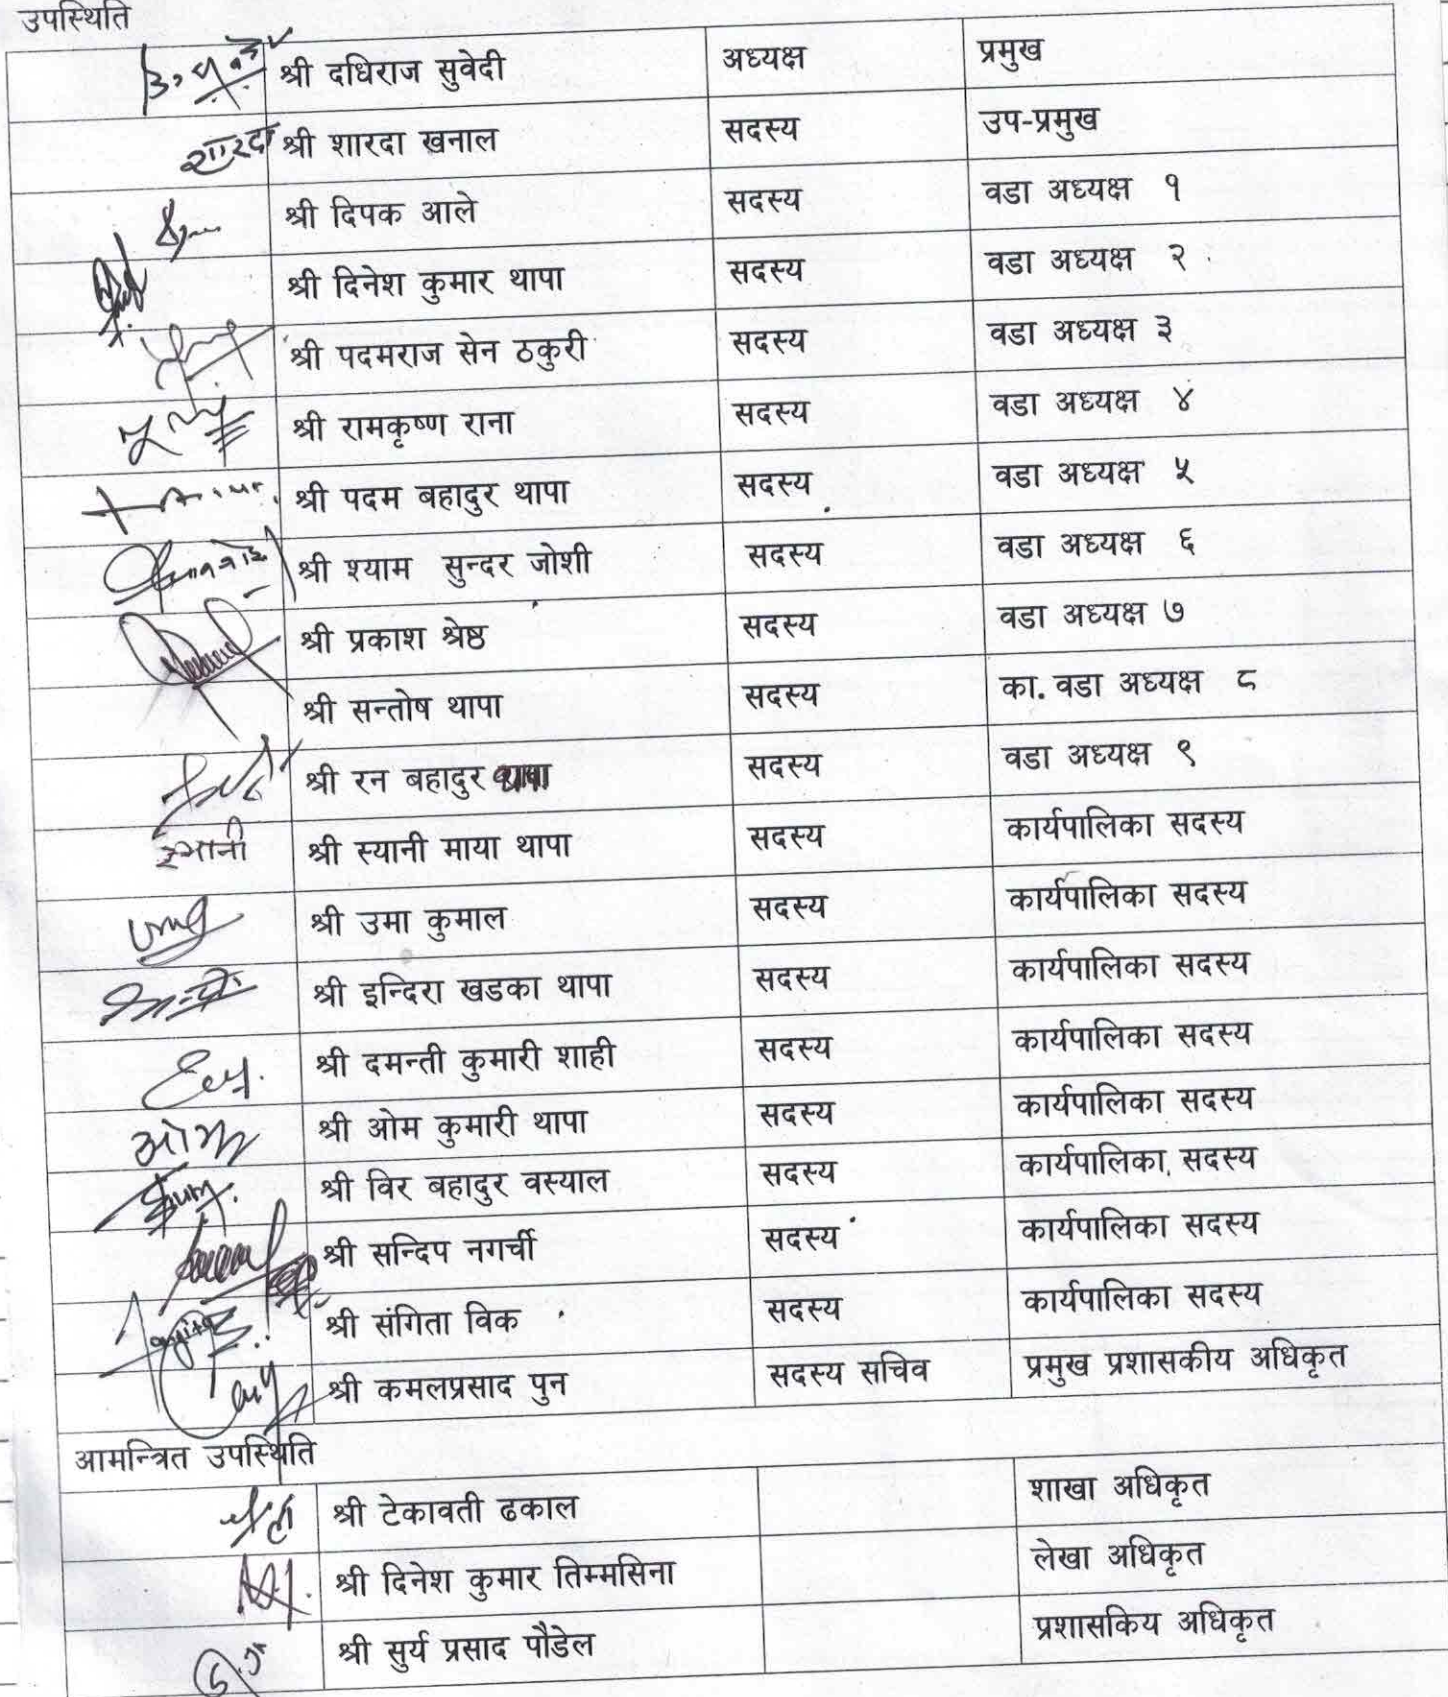 उपस्थिति
श्री दधिराज सुवेदी अध्यक्ष प्रमुख
शारदा श्री शारदा खनाल सदस्य उप-प्रमुख
श्री दिपक आले सदस्य वडा अध्यक्ष १
श्री दिनेश कुमार थापा सदस्य वडा अध्यक्ष २
श्री पदमराज सेन ठकुरी सदस्य वडा अध्यक्ष ३
श्री रामकृष्ण राना सदस्य वडा अध्यक्ष ४
श्री पदम बहादुर थापा सदस्य वडा अध्यक्ष ५
श्री श्याम सुन्दर जोशी सदस्य वडा अध्यक्ष ६
श्री प्रकाश श्रेष्ठ सदस्य वडा अध्यक्ष ७
श्री सन्तोष थापा सदस्य का. वडा अध्यक्ष ८
श्री रन बहादुर थापा सदस्य वडा अध्यक्ष ९
श्री स्यानी माया थापा सदस्य कार्यपालिका सदस्य
श्री उमा कुमाल सदस्य कार्यपालिका सदस्य
श्री इन्दिरा खडका थापा सदस्य कार्यपालिका सदस्य
श्री दमन्ती कुमारी शाही सदस्य कार्यपालिका सदस्य
श्री ओम कुमारी थापा सदस्य कार्यपालिका सदस्य
श्री विर बहादुर वस्याल सदस्य कार्यपालिका सदस्य
श्री सन्दिप नगर्ची सदस्य कार्यपालिका सदस्य
श्री संगिता विक सदस्य कार्यपालिका सदस्य
श्री कमलप्रसाद पुन सदस्य सचिव प्रमुख प्रशासकीय अधिकृत
आमन्त्रित उपस्थिति
श्री टेकावती ढकाल शाखा अधिकृत
श्री दिनेश कुमार तिम्मसिना लेखा अधिकृत
श्री सुर्य प्रसाद पौडेल प्रशासकिय अधिकृत